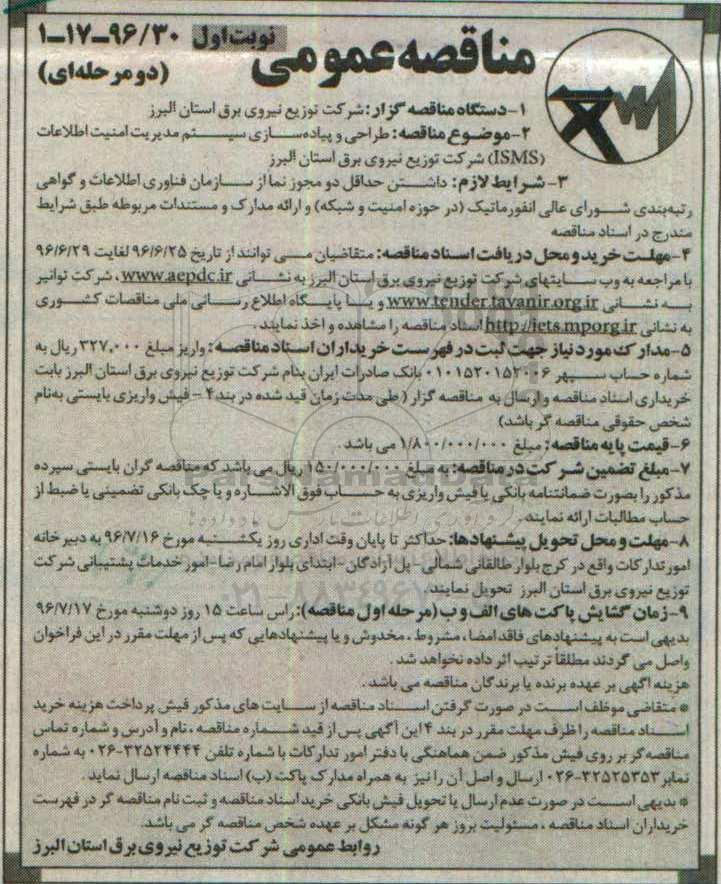 مناقصه عمومی نوبت اول ۹۶/۳۰-۱۷-۱
(دو مرحله‌ای)
۱-دستگاه مناقصه گزار: شرکت توزیع نیروی برق استان البرز
۲-موضوع مناقصه: طراحی و پیاده‌سازی سیستم مدیریت امنیت اطلاعات
(ISMS) شرکت توزیع نیروی برق استان البرز
۳- شرایط لازم: داشتن حداقل دو مجوز نما از سازمان فناوری اطلاعات و گواهی
رتبه‌بندی شورای عالی انفورماتیک (در حوزه امنیت و شبکه) و ارائه مدارک و مستندات مربوطه طبق شرایط
مندرج در اسناد مناقصه
۴-مهلت خرید و محل دریافت اسناد مناقصه: متقاضیان می توانند از تاریخ ۹۶/۶/۲۵ لغایت ۹۶/۶/۲۹
با مراجعه به وب سایتهای شرکت توزیع نیروی برق استان البرز به نشانی www.aepdc.ir، شرکت توانیر
به نشانی www.tender.tavanir.org.ir و یا پایگاه اطلاع رسانی ملی مناقصات کشوری
به نشانی http://iets.mporg.ir اسناد مناقصه را مشاهده و اخذ نمایند.
۵-مدارک مورد نیاز جهت ثبت در فهرست خریداران اسناد مناقصه: واریز مبلغ ۳۲۷,۰۰۰ ریال به
شماره حساب سپهر ۰۱۰۱۵۲۰۱۵۲۰۰۶ بانک صادرات ایران بنام شرکت توزیع نیروی برق استان البرز بابت
خریداری اسناد مناقصه و ارسال به مناقصه گزار (طی مدت زمان قید شده در بند ۴ - فیش واریزی بایستی به‌نام
شخص حقوقی مناقصه گر باشد)
۶-قیمت پایه مناقصه: مبلغ ۱/۸۰۰/۰۰۰/۰۰۰ می باشد.
۷-مبلغ تضمین شرکت در مناقصه: به مبلغ ۱۵۰/۰۰۰/۰۰۰ ریال می باشد که مناقصه گران بایستی سپرده
مذکور را بصورت ضمانتنامه بانکی یا فیش واریزی به حساب فوق الاشاره و یا چک بانکی تضمینی یا ضبط از
حساب مطالبات ارائه نمایند.
۸-مهلت و محل تحویل پیشنهادها: حداکثر تا پایان وقت اداری روز یکشنبه مورخ ۹۶/۷/۱۶ به دبیرخانه
امور تدارکات واقع در کرج بلوار طالقانی شمالی-پل آزادگان-ابتدای بلوار امام رضا-امور خدمات پشتیبانی شرکت
توزیع نیروی برق استان البرز تحویل نمایند.
۹-زمان گشایش پاکت های الف و ب (مرحله اول مناقصه): راس ساعت ۱۵ روز دوشنبه مورخ ۹۶/۷/۱۷
بدیهی است به پیشنهادهای فاقد امضا، مشروط، مخدوش و یا پیشنهادهایی که پس از مهلت مقرر در این فراخوان
واصل می گردند مطلقاً ترتیب اثر داده نخواهد شد.
هزینه اگهی بر عهده برنده یا برندگان مناقصه می باشد.
* متقاضی موظف است در صورت گرفتن اسناد مناقصه از سایت های مذکور فیش پرداخت هزینه خرید
اسناد مناقصه را ظرف مهلت مقرر در بند ۴ این آگهی پس از قید شماره مناقصه، نام و آدرس و شماره تماس
مناقصه گر بر روی فیش مذکور ضمن هماهنگی با دفتر امور تدارکات با شماره تلفن ۳۲۵۲۴۴۴۴-۰۲۶ به شماره
نمابر ۳۲۵۲۵۳۵۳-۰۲۶ ارسال و اصل آن را نیز به همراه مدارک پاکت (ب) اسناد مناقصه ارسال نماید.
* بدیهی است در صورت عدم ارسال یا تحویل فیش بانکی خرید اسناد مناقصه و ثبت نام مناقصه گر در فهرست
خریداران اسناد مناقصه، مسئولیت بروز هر گونه مشکل بر عهده شخص مناقصه گر می باشد.
روابط عمومی شرکت توزیع نیروی برق استان البرز